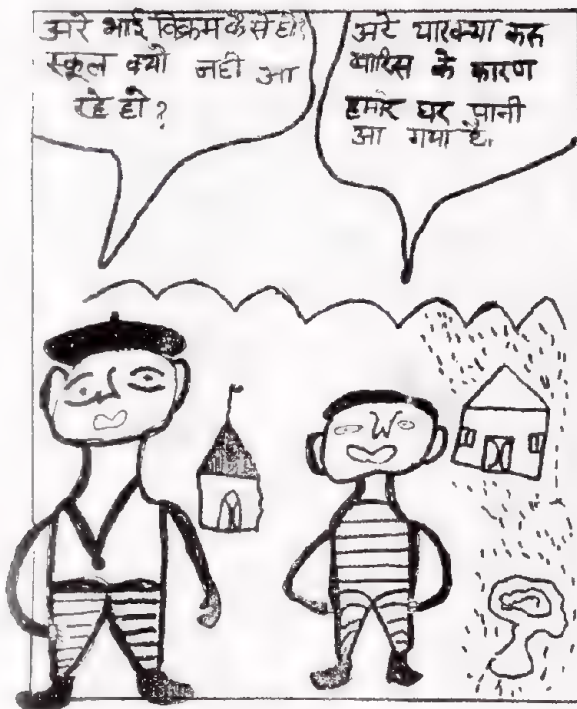 अरे भाई विक्रम कैसे हो?
स्कूल क्यो नही आ
रहे हो?
अरे यार क्या करु
बारिस के कारण
हमारे घर पानी
आ गया है.